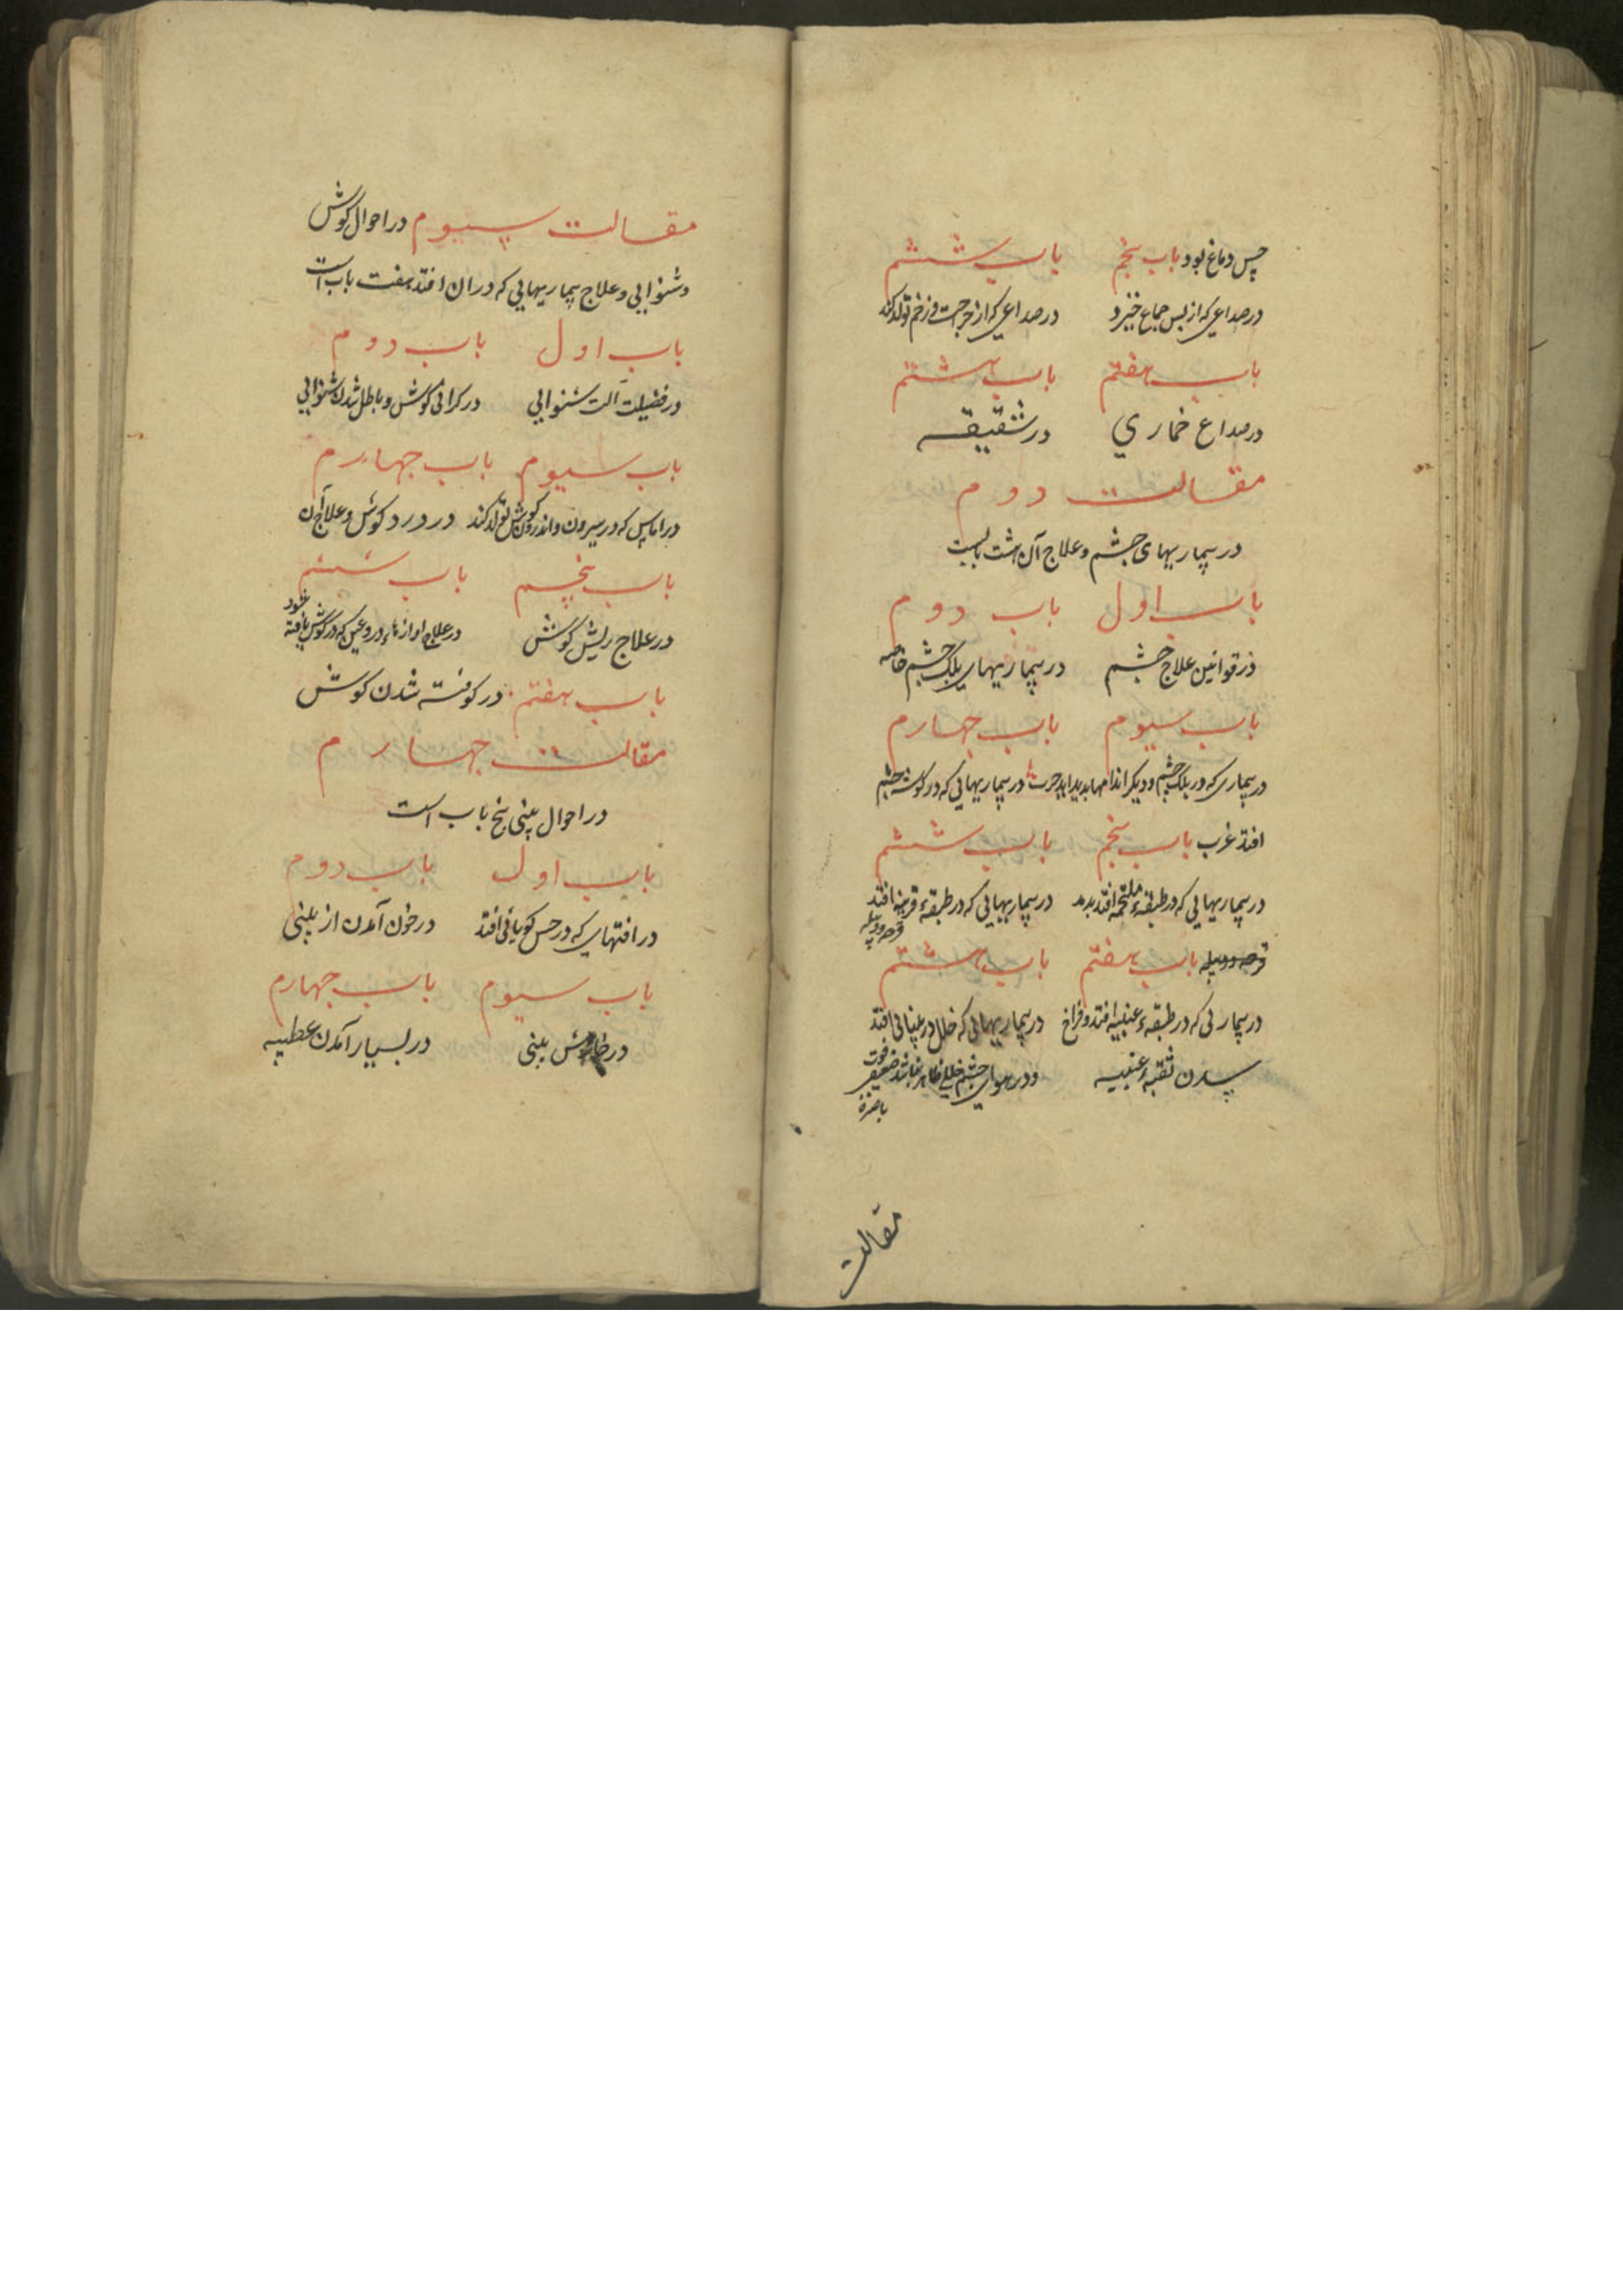 حس دماغ بود باب پنجم باب ششم
در صداعی که از پس جماع خیزد در صداعی که از جراحت و زخم تولد کند
باب هفتم باب هشتم
در صداع خماری در شقیقه
مقالت دوم
در بیماریهای چشم و علاج آن هشت بابست
باب اول باب دوم
در قوانین علاج چشم در بیماریهای پلک چشم خاصه
باب سیوم باب چهارم
در بیماری که در پلک چشم و دیکر اندامها بدید اید در بیماریهایی که در کوشه چشم
افتد غرب باب پنجم باب ششم
در بیماریهایی که در طبقهٔ ملتحمه افتد در بیماریهایی که در طبقهٔ قرنیه افتد
قرحه و دبیله
قرحه و دبیله باب هفتم باب هشتم
در بیماریی که در طبقهٔ عنبیه افتد و فراخ در بیماریهایی که خلل در بینائی افتد
شدن ثقبهٔ عنبیه و در چشم خللی ظاهر نباشد ضعیفی قوت
باصره
مقالت
مقالت سیوم در احوال کوش
و شنوایی و علاج بیماریهایی که در ان افتد هفت باب است
باب اول باب دوم
در فضیلت آلت شنوایی در کرانی کوش و باطل شدن شنوایی
باب سیوم باب چهارم
در اماس که در بیرون و اندرون کوش تولد کند در درد کوش و علاج آن
باب پنجم باب ششم
در علاج ریش کوش در علاج اوازها و دروغین که در کوش یافته
شود
باب هفتم در کوفته شدن کوش
مقالت چهارم
در احوال بینی پنج باب است
باب اول باب دوم
در افتهای که در حس کویائی افتد در خون آمدن از بینی
باب سیوم باب چهارم
در خارش بینی در بسیار آمدن عطسه